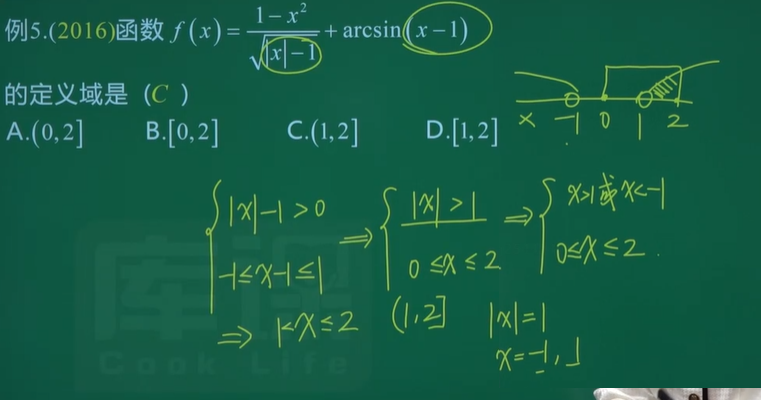 例5.(2016)函数 f(x)= (1-x²)/√(|x|-1) + arcsin(x-1)
的定义域是 ( C )
A.(0,2] B.[0,2] C.(1,2] D.[1,2]
x -1 0 1 2
{ |x|-1>0 ⇒ { |x|>1 ⇒ { x>1或x<-1
-1≤x-1≤1 0≤x≤2 0≤x≤2.
⇒ 1<x≤2 (1,2] |x|=1
x=-1,1
库课
Cook Life